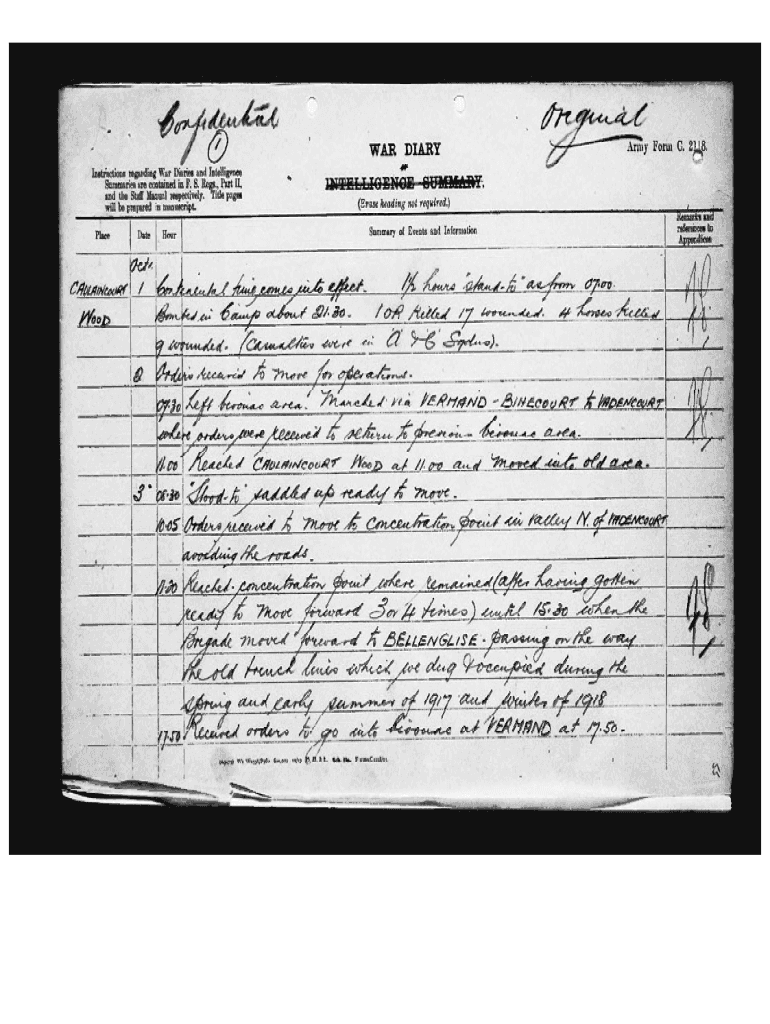 Confidential
Original
①
WAR DIARY
or
Army Form C. 2118.
INTELLIGENCE SUMMARY.
(Erase heading not required.)
Instructions regarding War Diaries and Intelligence
Summaries are contained in F. S. Regs., Part II,
and the Staff Manual respectively. Title pages
will be prepared in manuscript.
Place Date Hour Summary of Events and Information Remarks and references to Appendices
Octr.
CAULAINCOURT 1 Continental time comes into effect. 1½ hours "stand-to" as from 07.00.
WOOD Bombed in Camp about 21.30. 1 OR killed 17 wounded. 4 horses killed
9 wounded. (Casualties were in 'A' & 'C' Sqdns).
2 Orders received to move for operations.
07.30 Left bivouac area. Marched via VERMAND - BIHECOURT to VADENCOURT
where orders were received to return to previous bivouac area.
11.00 Reached CAULAINCOURT WOOD at 11.00 and moved into old area.
3 08.30 "Stood-to" saddled up ready to move.
10.05 Orders received to move to concentration point in valley N. of VADENCOURT
avoiding the roads.
11.30 Reached concentration point where remained (after having gotten
ready to move forward 3 or 4 times) until 15.30 when the
Brigade moved forward to BELLENGLISE - passing on the way
the old trench lines which we dug & occupied during the
spring and early summer of 1917 and winter of 1918
17.50 Received orders to go into bivouac at VERMAND at 17.50.